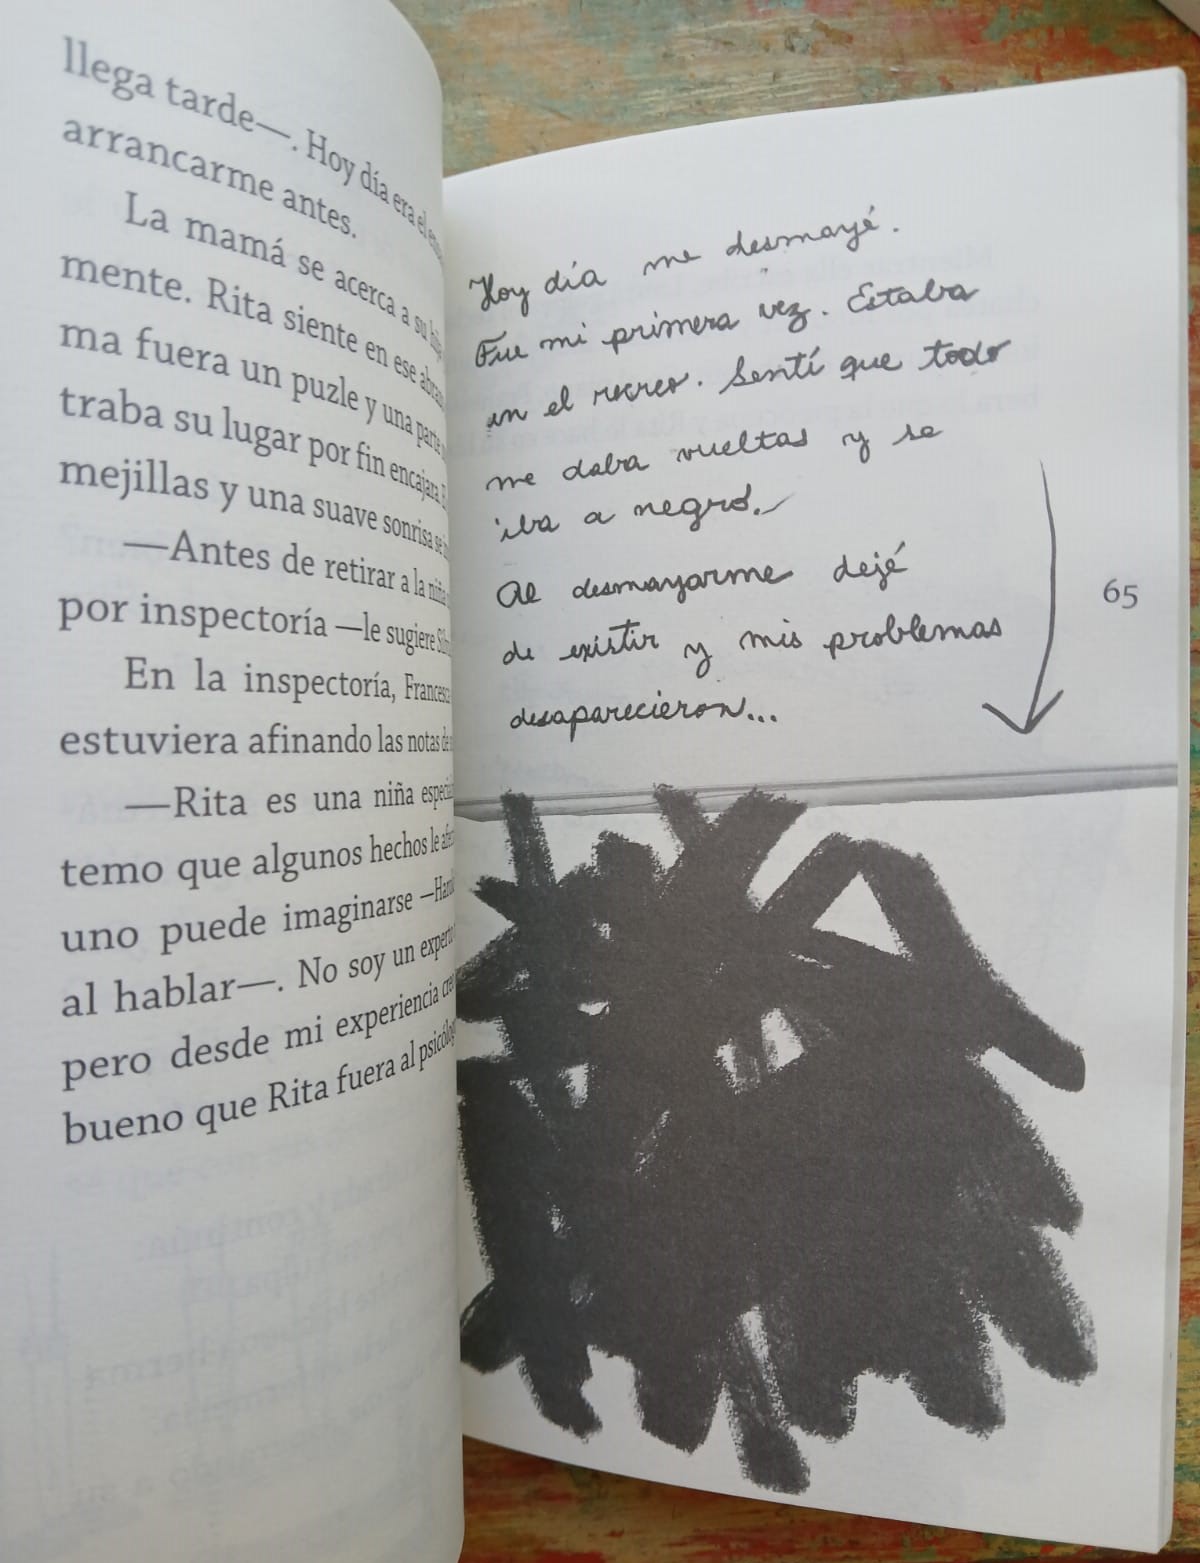 llega tarde—. Hoy día era el
arrancarme antes.
La mamá se acerca a su
mente. Rita siente en ese
ma fuera un puzle y una parte
traba su lugar por fin encajara.
mejillas y una suave sonrisa se
—Antes de retirar a la niña
por inspectoría —le sugiere
En la inspectoría, Francesca
estuviera afinando las notas de
—Rita es una niña
temo que algunos hechos le
uno puede imaginarse
al hablar—. No soy un experto
pero desde mi experiencia
bueno que Rita fuera al
Hoy día me desmayé.
Fue mi primera vez. Estaba
en el recreo. Sentí que todo
me daba vueltas y se
iba a negro.
Al desmayarme dejé
de existir y mis problemas
desaparecieron...
65